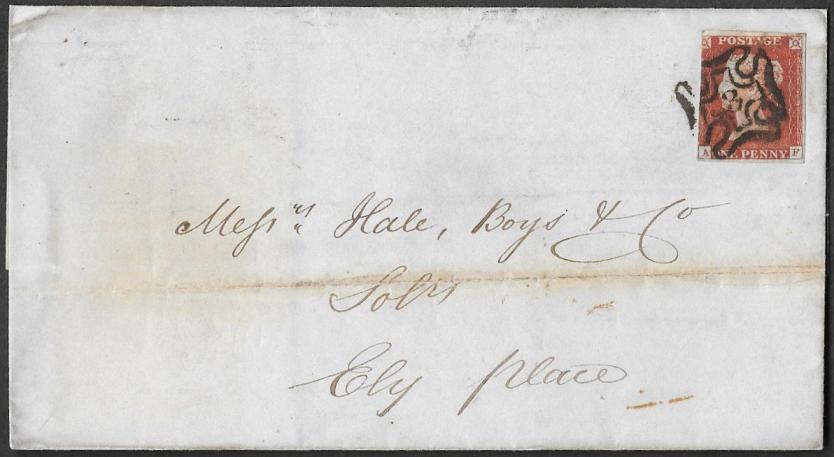 POSTAGE
A ONE PENNY F
Messrs Hale, Boys & Co
Solrs
Ely Place